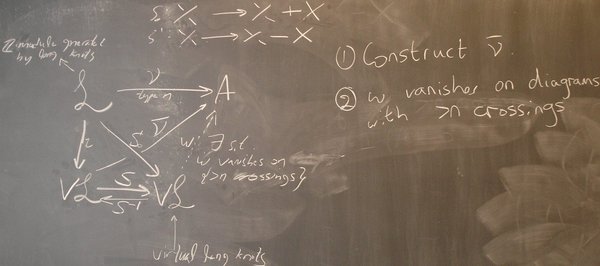 S: X → X + X
S⁻¹ X → X - X
ℤ module generated
by long knots
L ν A
type n
i S ν̄
w ∃ s.t.
w vanishes on
{>n crossings}
VL S VL
S⁻¹
virtual long knots
① Construct ν̄.
② w vanishes on diagrams
with >n crossings